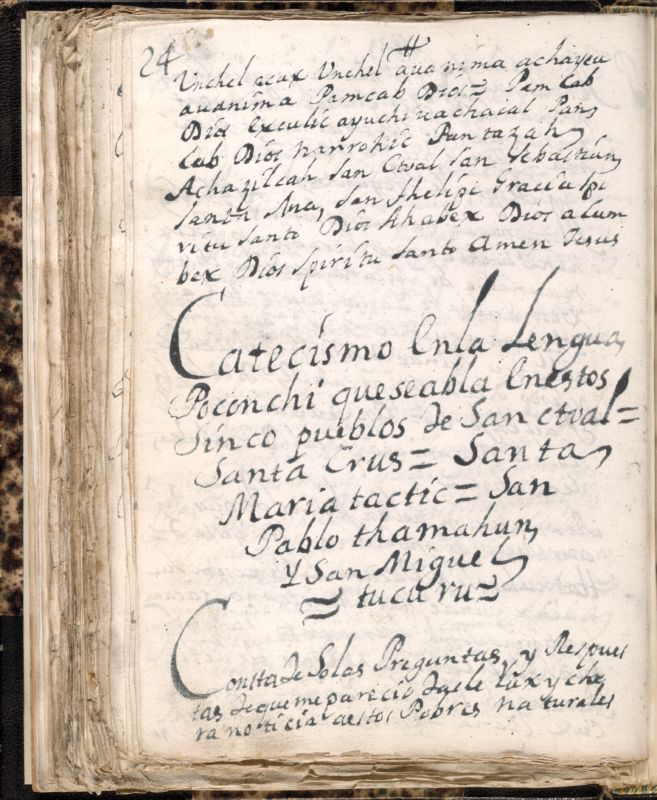 24
Vnchel acax Vnchel aua nima achayeu
auanima Pamcab Dios = Pam Cab
Dios exculic ayuchiuachacal Pan
Cab Dios narrohic Pantazah
Achazilcah San Ctval San Sebastian
Santa Ana, San Phelipe Gracia spi
ritu santo Dios Ahabex Dios alcum
bex Dios spiritu santo Amen Jesus
Catecismo En la Lengua
Poconchi que seabla En estos
Sinco pueblos de San ctval =
Santa Crus = Santa
Maria tactic = San
Pablo thamahun
Y San Miguel
= tucuru =
Consta de Solas Preguntas, y Respues
tas de que me parecio darle lux y che
ra noticia aestos Pobres naturales